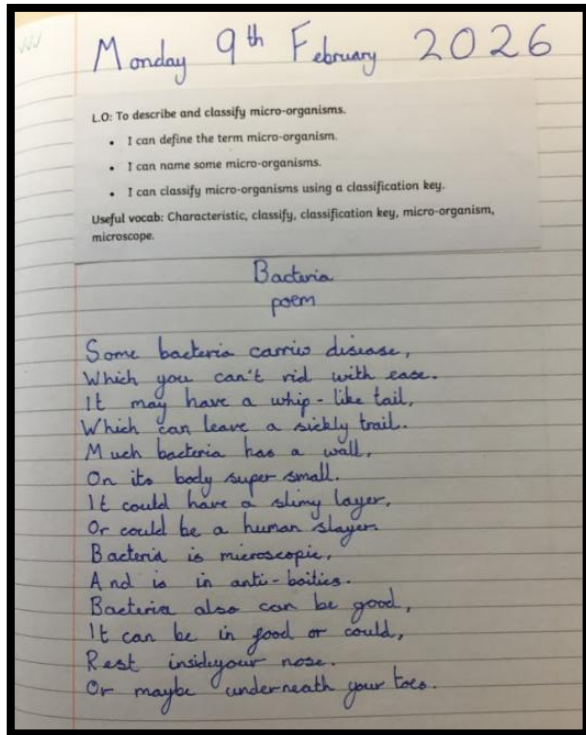 Monday 9th February 2026
L.O: To describe and classify micro-organisms.
• I can define the term micro-organism.
• I can name some micro-organisms.
• I can classify micro-organisms using a classification key.
Useful vocab: Characteristic, classify, classification key, micro-organism,
microscope.
Bacteria
poem
Some bacteria carries disease,
Which you can't rid with ease.
It may have a whip-like tail,
Which can leave a sickly trail.
Much bacteria has a wall,
On its body super small.
It could have a slimy layer,
Or could be a human slayer.
Bacteria is microscopic,
And is in anti-boitics.
Bacteria also can be good,
It can be in food or could,
Rest inside your nose.
Or maybe underneath your toes.